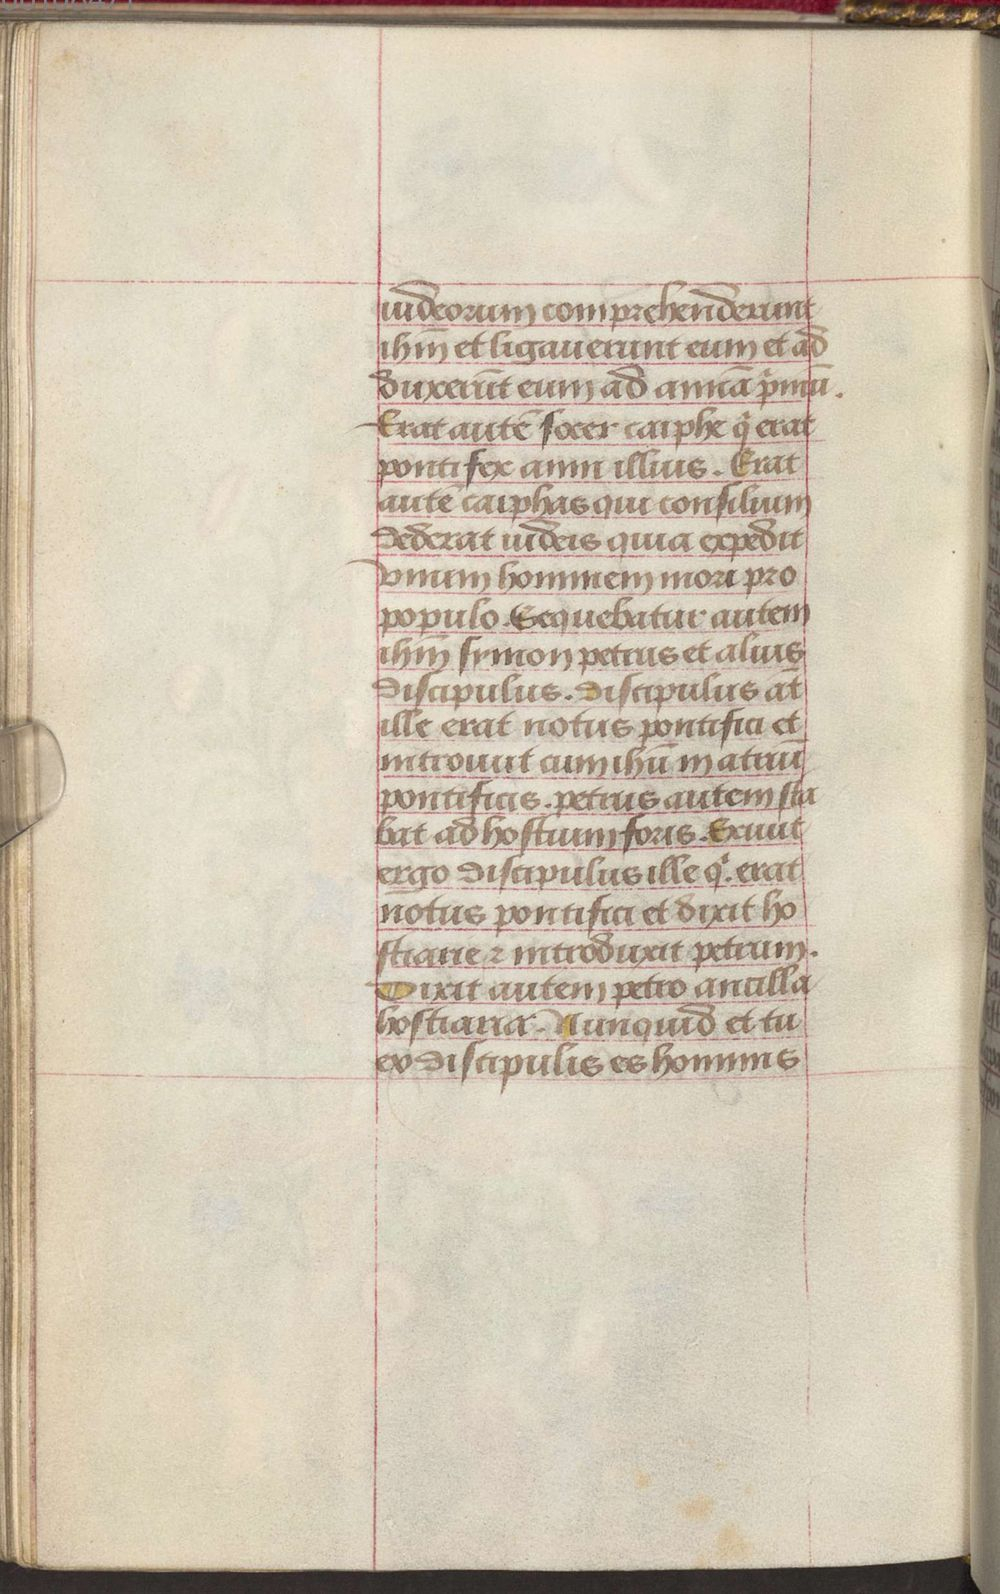 iudeorum comprehenderunt
ihm̄ et ligauerunt eum et ad
duxerūt eum ad annā p̄mū.
Erat autē socer caiphe q̄ erat
pontifex anni illius. Erat
autē caiphas qui consilium
dederat iudeis quia expedit
vnum hominem mori pro
populo. Sequebatur autem
ihm̄ symon petrus et alius
discipulus. discipulus at̄
ille erat notus pontifici et
introiuit cum ihū in atriū
pontificis. petrus autem sta
bat ad hostium foris. Exiuit
ergo discipulus ille q̄. erat
notus pontifici et dixit ho
stiarie ⁊ introduxit petrum.
Dixit autem petro ancilla
hostiaria. Nunquid et tu
ex discipulis es hominis